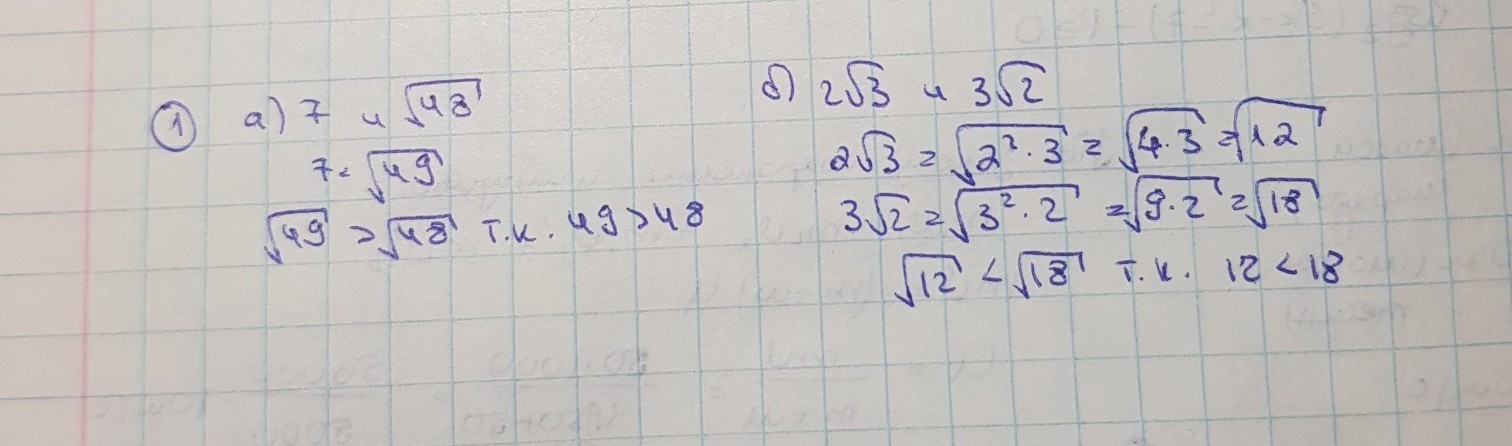 ① а) 7 и √48
7 = √49
√49 > √48 т.к. 49 > 48
б) 2√3 и 3√2
2√3 = √2²·3 = √4·3 = √12
3√2 = √3²·2 = √9·2 = √18
√12 < √18 т.к. 12 < 18